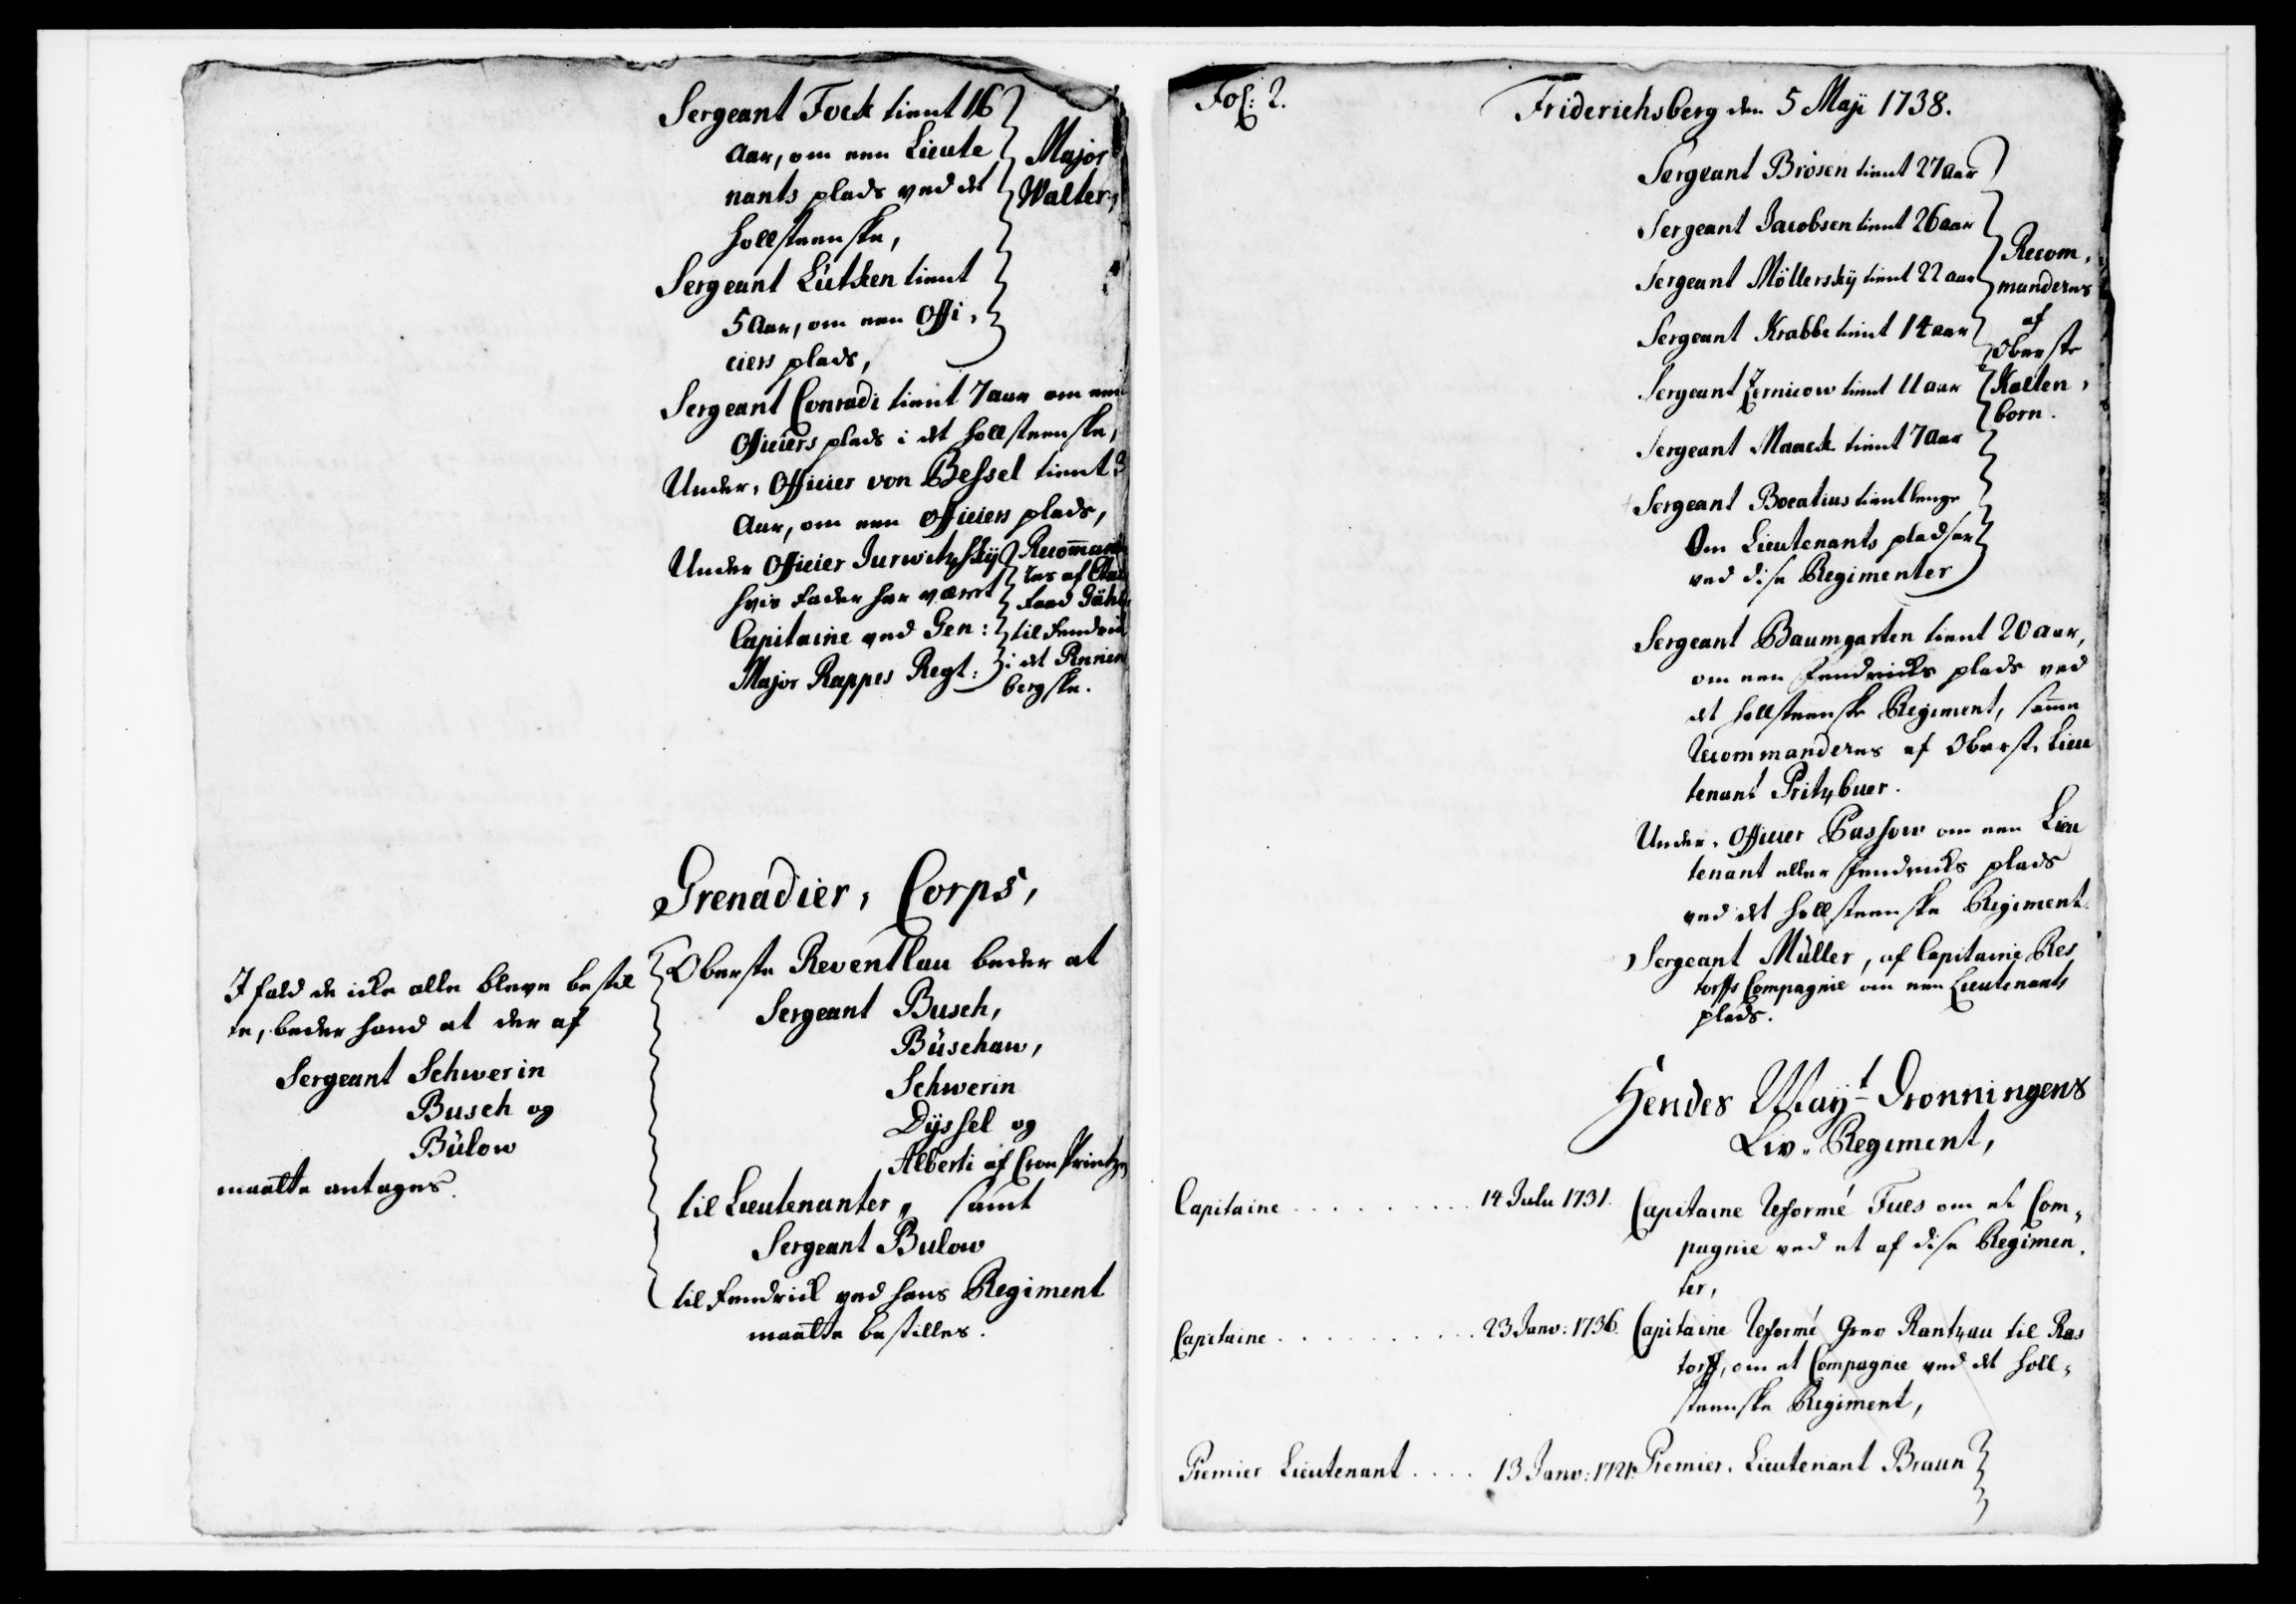 Sergeant Fock tient 16
Aar, om een Lieute
nants plads ved det
Hollsteenske,
Major
Walter,
Sergeant Lütken tient
5 Aar, om een Offi,
ciers plads,
Sergeant Conradi tient 7 aar om een
Officiers plads i det Hollsteenske,
Under, Officier von Bessel tient 3
Aar, om een Officiers plads,
Under Officier Jurwitzsky
hvis fader har været
Capitaine ved Gen:
Major Rappes Regt:
Recom̄and
res af
til fendrick
i det Pennen
bergske.
Grenadier, Corps,
Oberste Reventlau beder at
Sergeant Busch,
Büschaw,
Schwerin
Dÿssel og
Alberti af Cron Printzen
til Lieutenanter, samt
Sergeant Bulow
til fendrick ved hans Regiment
maatte bestilles.
I fald de icke alle bleve bestil
te, beder hand at der af
Sergeant Schwerin
Busch og
Bülow
maatte antages.
Fol: 2.
Friderichsberg den 5 Maji 1738.
Sergeant Brösen tient 27 aar
Sergeant Jacobsen tient 26 aar
Sergeant Möllerskÿ tient 22 aar
Sergeant Krabbe tient 14 aar
Sergeant Zernicow tient 11 aar
Sergeant Maack tient 7 Aar
Sergeant Bocatius tient lenge
Om Lieutenants pladser
ved disse Regimenter
Recom,
manderes
af
Oberste
Kalten,
born.
Sergeant Baumgarten tient 20 aar,
om een fendricks plads ved
det Hollsteenske Regiment, sam̄e
Recommanderes af Oberst, Lieu
tenant Pritzbuer.
Under, Officier Passow om een Lieu
tenant eller fendricks plads
ved det Hollsteenske Regiment.
Sergeant Müller, af Capitaine Res
torffs Compagnie om een Lieutenants
plads.
Hendes Mayt Dronningens
Liv, Regiment,
Capitaine . . . . . . . . . 14 Julii 1731. Capitaine Reformé Fues om et Com,
pagnie ved et af disse Regimen,
ter,
Capitaine . . . . . . . . . . 23 Janv: 1736. Capitaine Reformé Grev Rantzau til Ras
torff, om et Compagnie ved det Holl,
steenske Regiment,
Premier Lieutenant . . . . 13 Janv: 1721. Premier, Lieutenant Braun